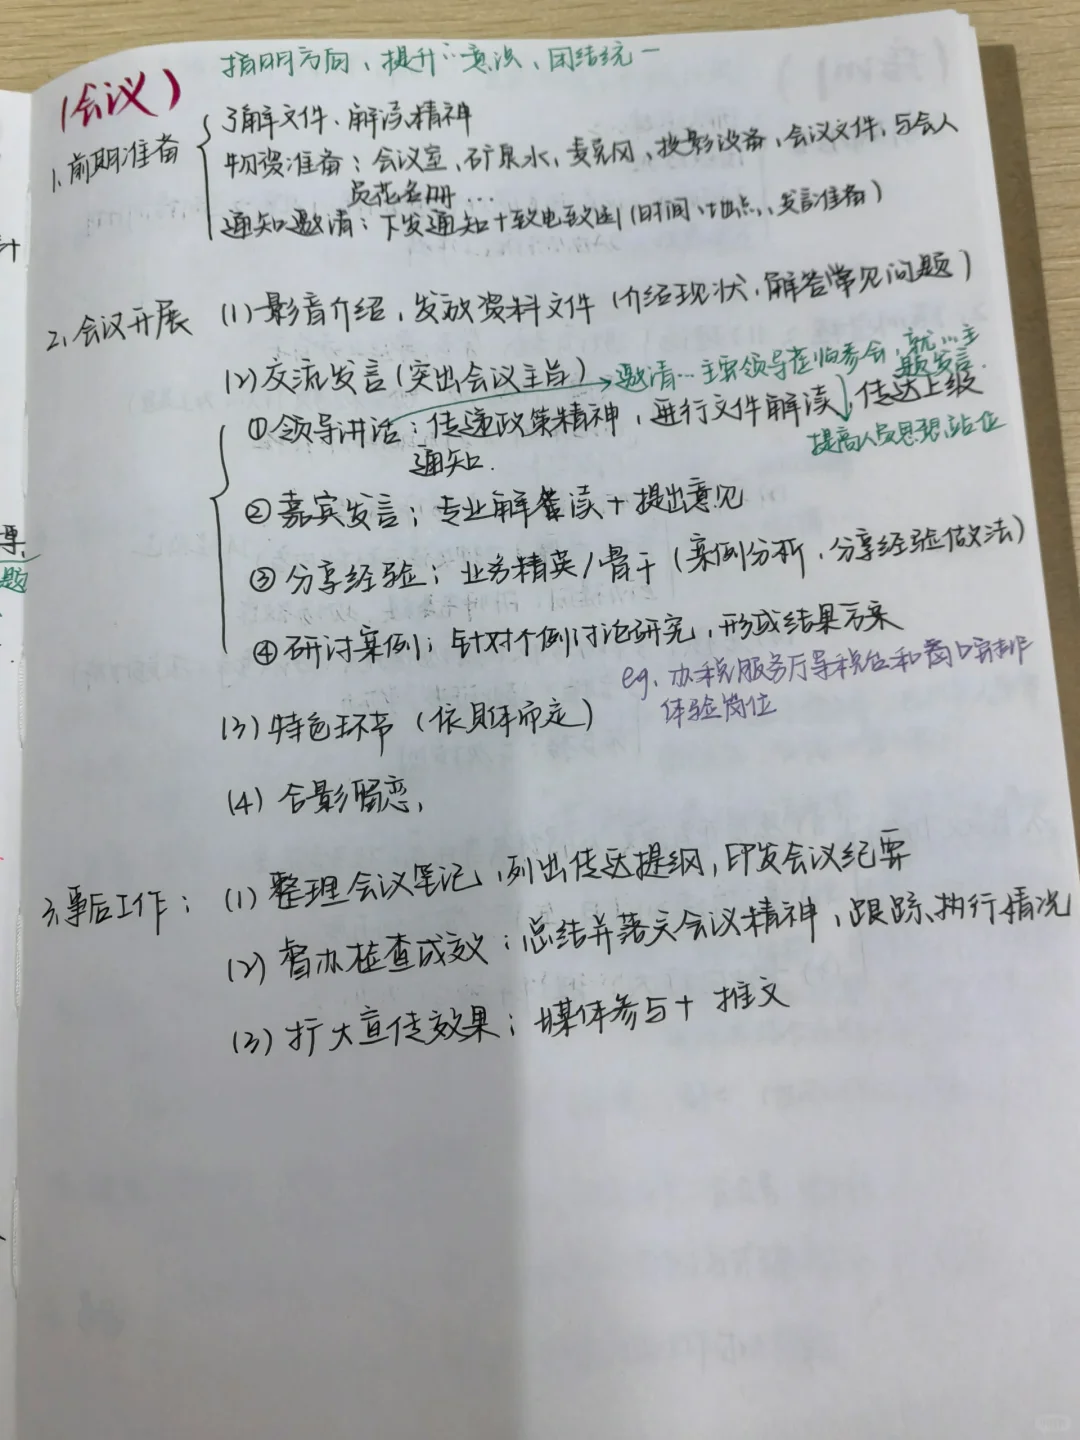 指明方向、提升…意识、团结统一
(会议)
1、前期准备
了解文件、解读精神
物资准备：会议室、矿泉水、麦克风、投影设备、会议文件、与会人
员花名册…
通知邀请：下发通知+致电致函(时间、地点、发言准备)
2、会议开展 (1)影音介绍，发放资料文件(介绍现状，解答常见问题)
(2)交流发言(突出会议主旨)→邀请…主要领导莅临参会，就…主
题发言.
①领导讲话：传递政策精神，进行文件解读，传达上级
通知.
提高人员思想站位
②嘉宾发言：专业解读+提出意见
③分享经验：业务精英/骨干(案例分析，分享经验做法)
④研讨案例：针对个例讨论研究，形成结果方案
eg、办税服务厅导税台和窗口安排
体验岗位
(3)特色环节(依具体而定)
(4)合影留恋,
3、事后工作：(1)整理会议笔记，列出传达提纲，印发会议纪要
(2)督办检查成效：总结并落实会议精神，跟踪执行情况
(3)扩大宣传效果：媒体参与+推文
题